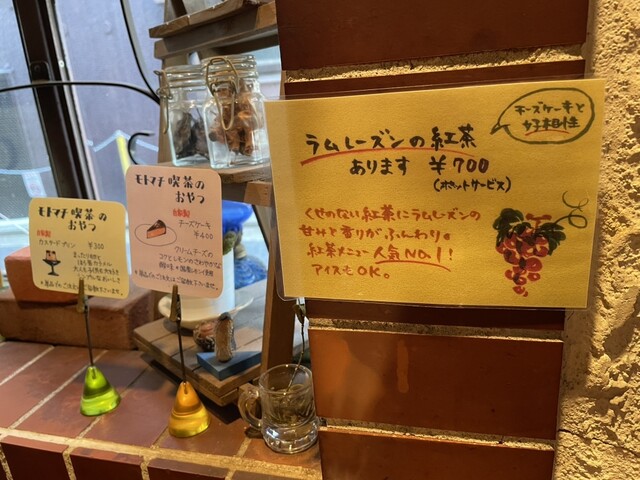 モトマチ喫茶の
おやつ
自家製
カスタードプリン ¥300
モトマチ喫茶の
おやつ
自家製
チーズケーキ
¥400
クリームチーズの
コクとレモンのさわやかな
チーズケーキと
好相性
ラムレーズンの紅茶
あります ¥700
(ポットサービス)
くせのない紅茶にラムレーズンの
甘みと香りが ふんわり。
紅茶メニュー人気No.1!
アイスもOK。